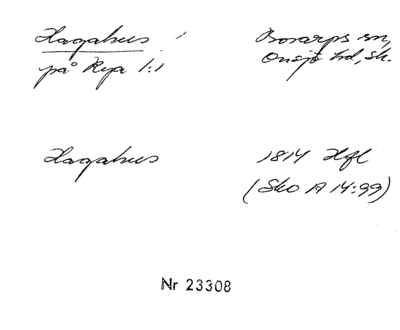 Hagahus
på Rya 1:1
Bosarps sn,
Onsjö hd, Sk.
Hagahus
1814 Hfl
(Sko A 14:99)
Nr 23308